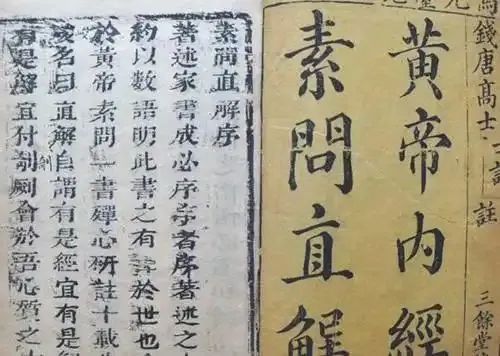 錢唐高士 註
三餘堂
黃帝內經
素問直解
素問直解序
著述家書成必序序者序著述之
約以數語明此書之有 於世也
於黃帝素問一書殫心研註十載
名曰直解自謂有是經宜有是
有是解宜付剞劂會於語心質之